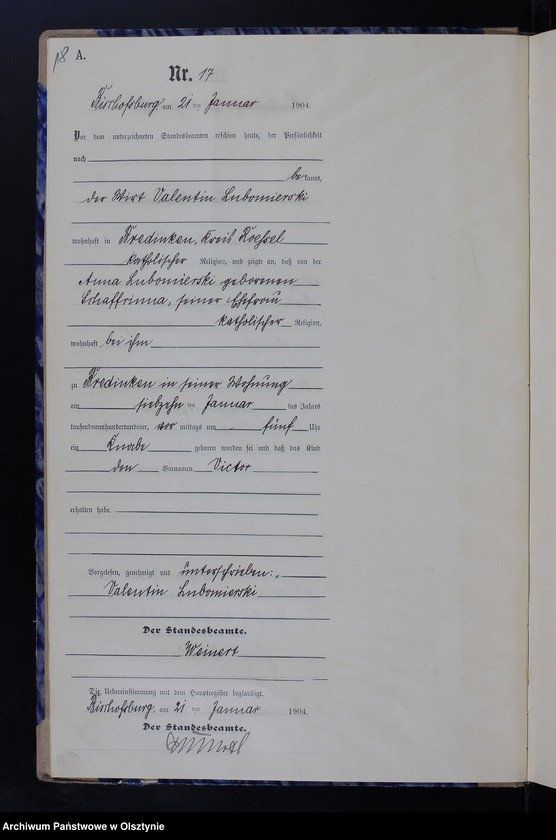 18 A.
Nr. 17
Bischofsburg am 21 ten Januar 1904.
Vor dem unterzeichneten Standesbeamten erschien heute, der Persönlichkeit
nach
bekannt,
der Wirt Valentin Lubomierski
wohnhaft in Bredinken, Kreis Roessel
katholischer Religion, und zeigte an, daß von der
Anna Lubomierski geborenen
Schaffrinna, seiner Ehefrau
katholischer Religion,
wohnhaft bei ihm
zu Bredinken in seiner Wohnung
am siebzehn ten Januar des Jahres
tausendneunhundertundvier, vor mittags um fünf Uhr
ein Knabe geboren worden sei und daß das Kind
den Vornamen Victor
erhalten habe.
Vorgelesen, genehmigt und unterschrieben:
Valentin Lubomierski
Der Standesbeamte.
Weinert
Die Uebereinstimmung mit dem Hauptregister beglaubigt.
Bischofsburg, am 21 ten Januar 1904.
Der Standesbeamte.
Archiwum Państwowe w Olsztynie